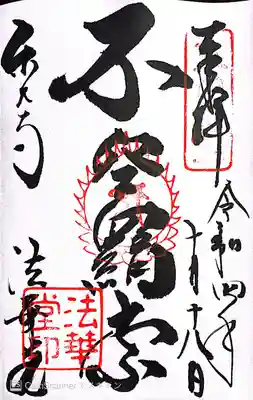 奉拝
令和四年
十月十八日
不空羂索
東大寺
法華堂
法華
堂印
CamScanner でスキャン